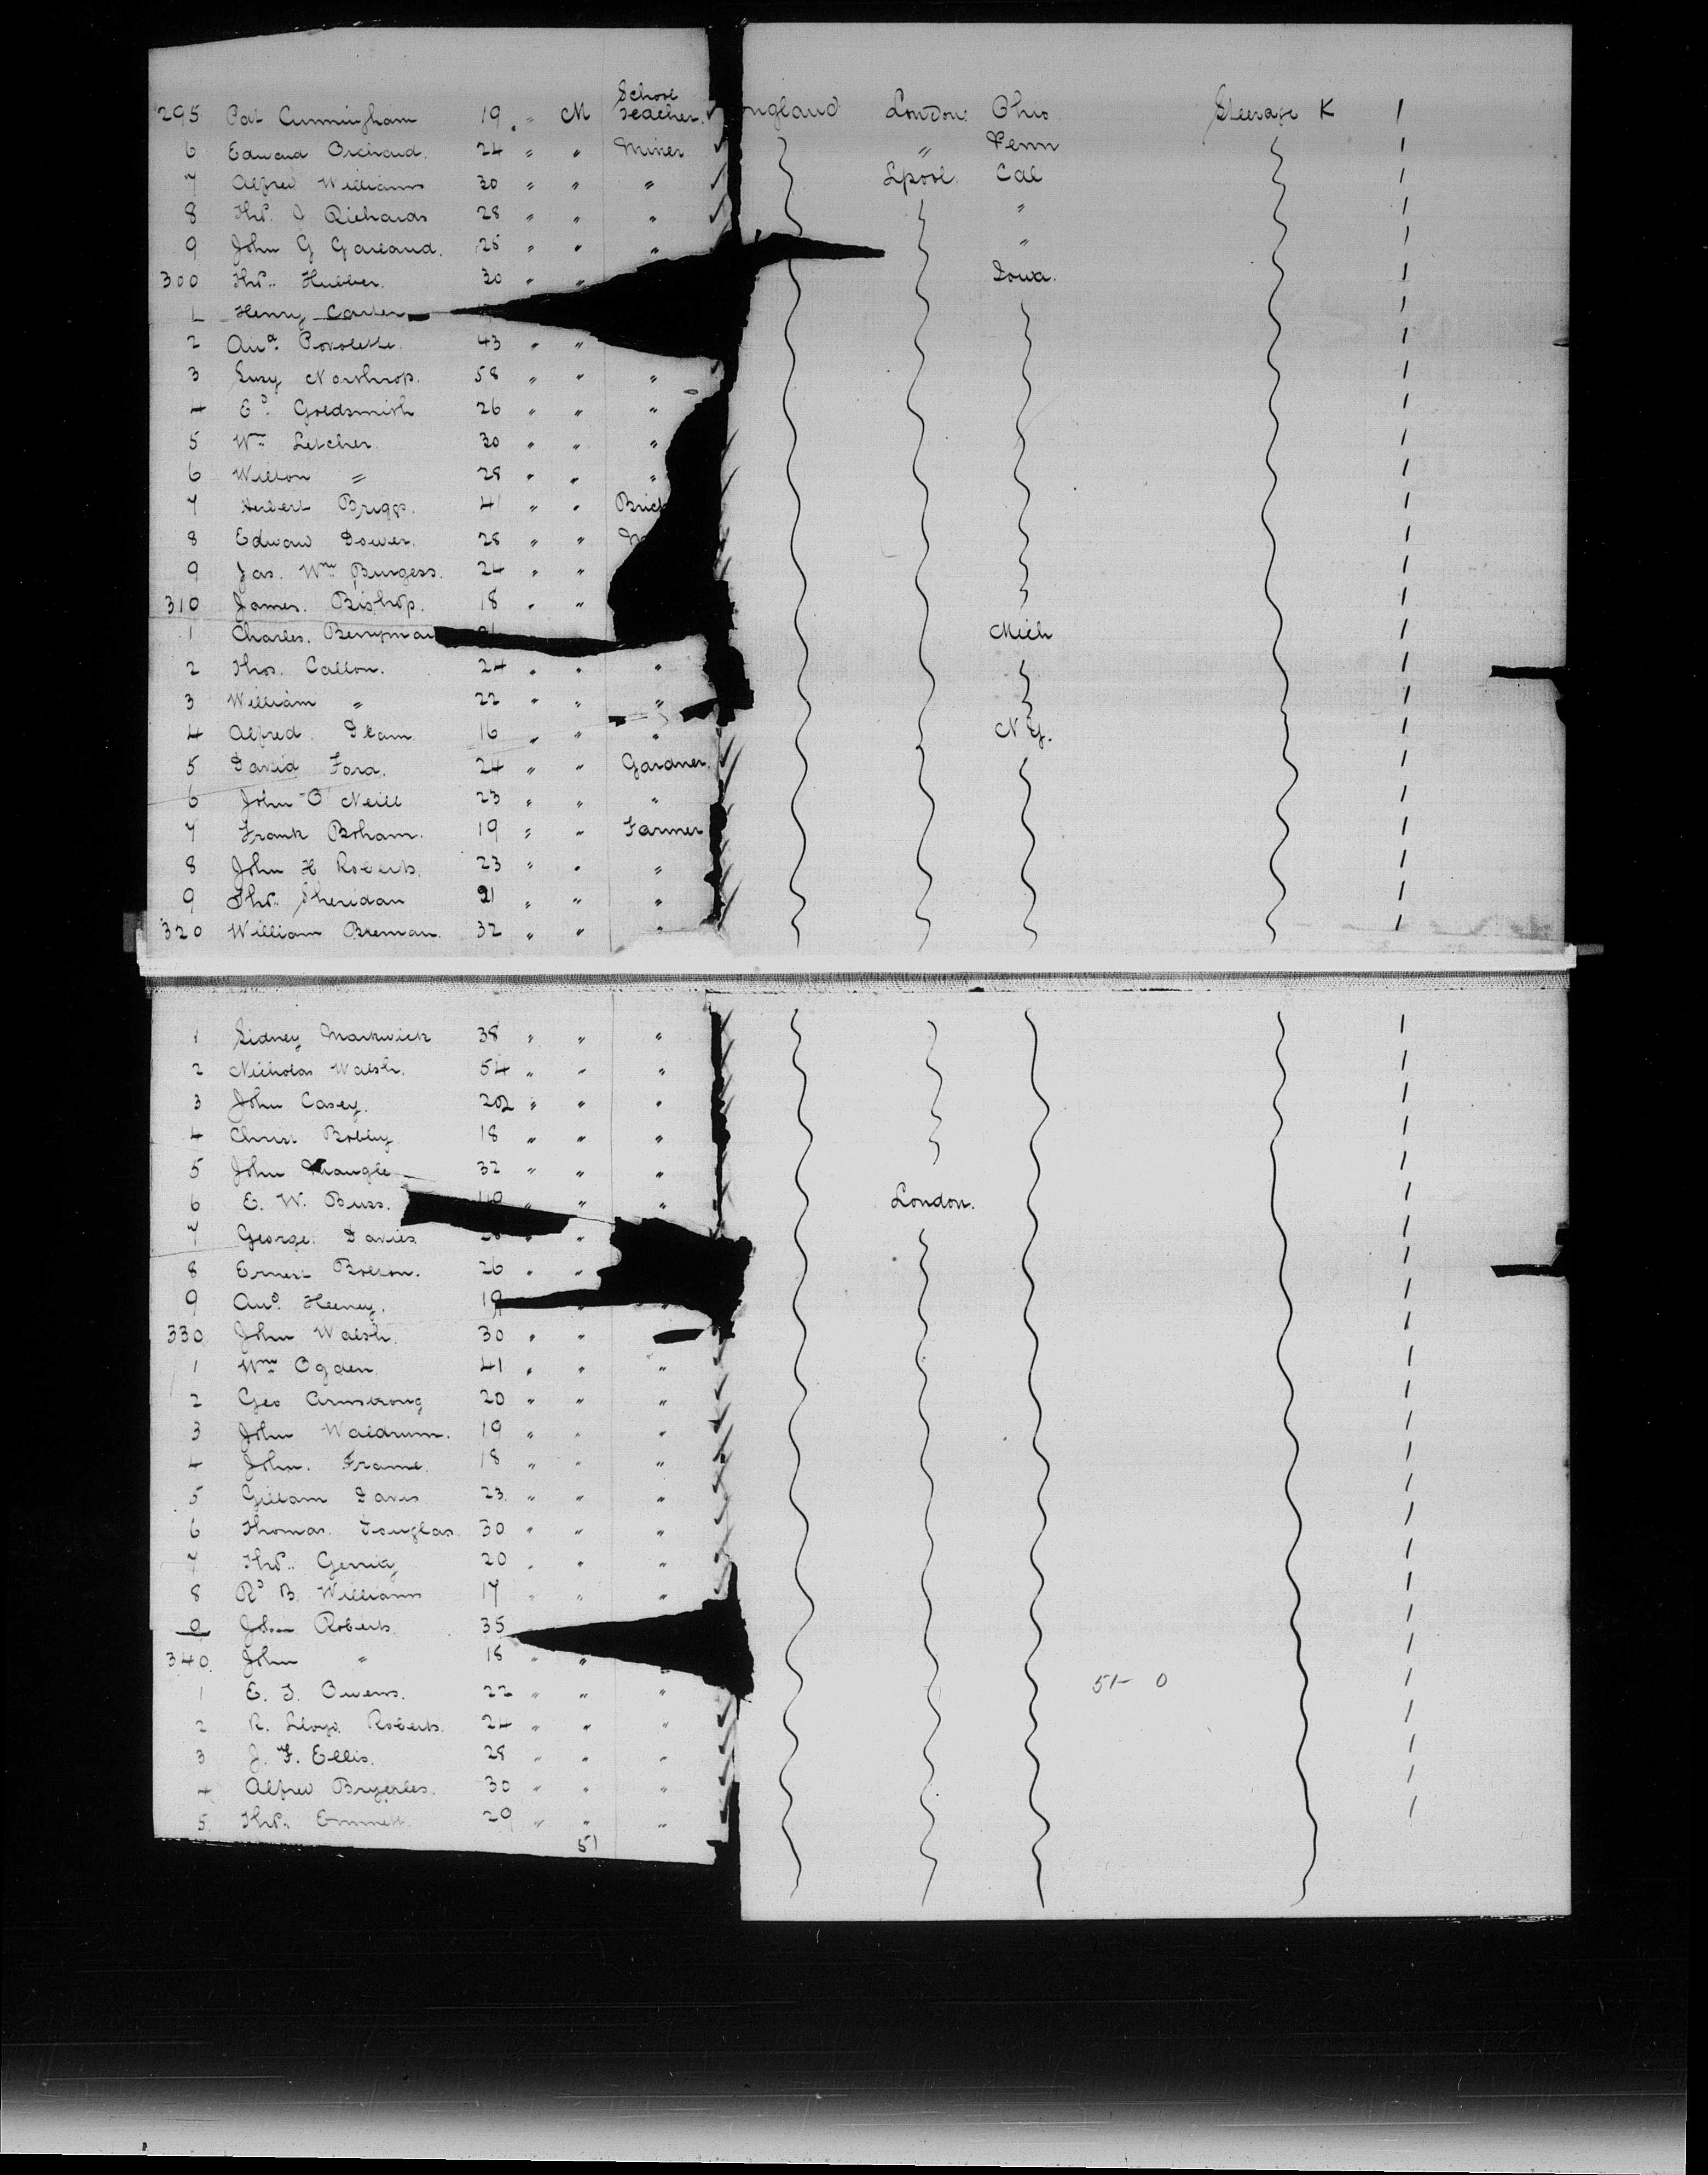 295 Pat Cunningham 19 " M School Teacher England London Ohio Steerage K 1
6 Edward Orchard. 24 " " Miner " Penn 1
7 Alfred Williams 30 " " " Lpool. Cal 1
8 Thos. J Richards 28 " " " " 1
9 John G Garland. 25 " " " " 1
300 Thos. Hubber. 30 " " Iowa. 1
1 Henry Carter 1
2 43 " " 1
3 Northrop. 58 " " " 1
4 Ed. Goldsmith 26 " " " 1
5 Wm Letcher 30 " " " 1
6 Wilton " 28 " " " 1
7 Herbert Briggs. 41 " " Brick 1
8 Edward Dower. 28 " " 1
9 Jas. Wm Burgess. 24 " " 1
310 James. Bishop. 18 " " 1
1 Charles. Berryman Mich 1
2 Thos. Callon. 24 " " " 1
3 William " 22 " " " 1
4 Alfred. 16 " " " N Y. 1
5 David Ford. 24 " " Gardner. 1
6 John O'Neill 23 " " " 1
7 Frank Boham. 19 " " Farmer 1
8 John H Roberts. 23 " " " 1
9 Thos. Sheridan 21 " " " 1
320 William Brennan. 32 " " " 1
1 Sidney Markwick 38 " " " 1
2 Nicholas Walsh. 54 " " " 1
3 John Casey. " " " 1
4 Christ Bobby 18 " " " 1
5 John 32 " " " 1
6 E. W. Buss. " " London. 1
7 George. Davies " " 1
8 Ernest Bolton. 26 " " 1
9 Heeney. 19 1
330 John Walsh. 30 " " 1
1 Wm Ogden 41 " " " 1
2 Geo Armstrong 20 " " " 1
3 John Waldrum. 19 " " " 1
4 John. Frame. 18 " " " 1
5 Gillam Davis 23. " " " 1
6 Thomas. Douglas. 30 " " " 1
7 Thos. Gerrity 20 " " " 1
8 Rd B. Williams 17 " " " 1
9 John Roberts. 35 1
340 John " 18 " " 1
1 E. J. Owens. 22 " " " 51- 0 1
2 R. Lloyd Roberts. 24 " " " 1
3 J. F. Ellis. 28 " " " 1
4 Alfred 30 " " " 1
5. Thos. Emmett. 29 " " " 1
51